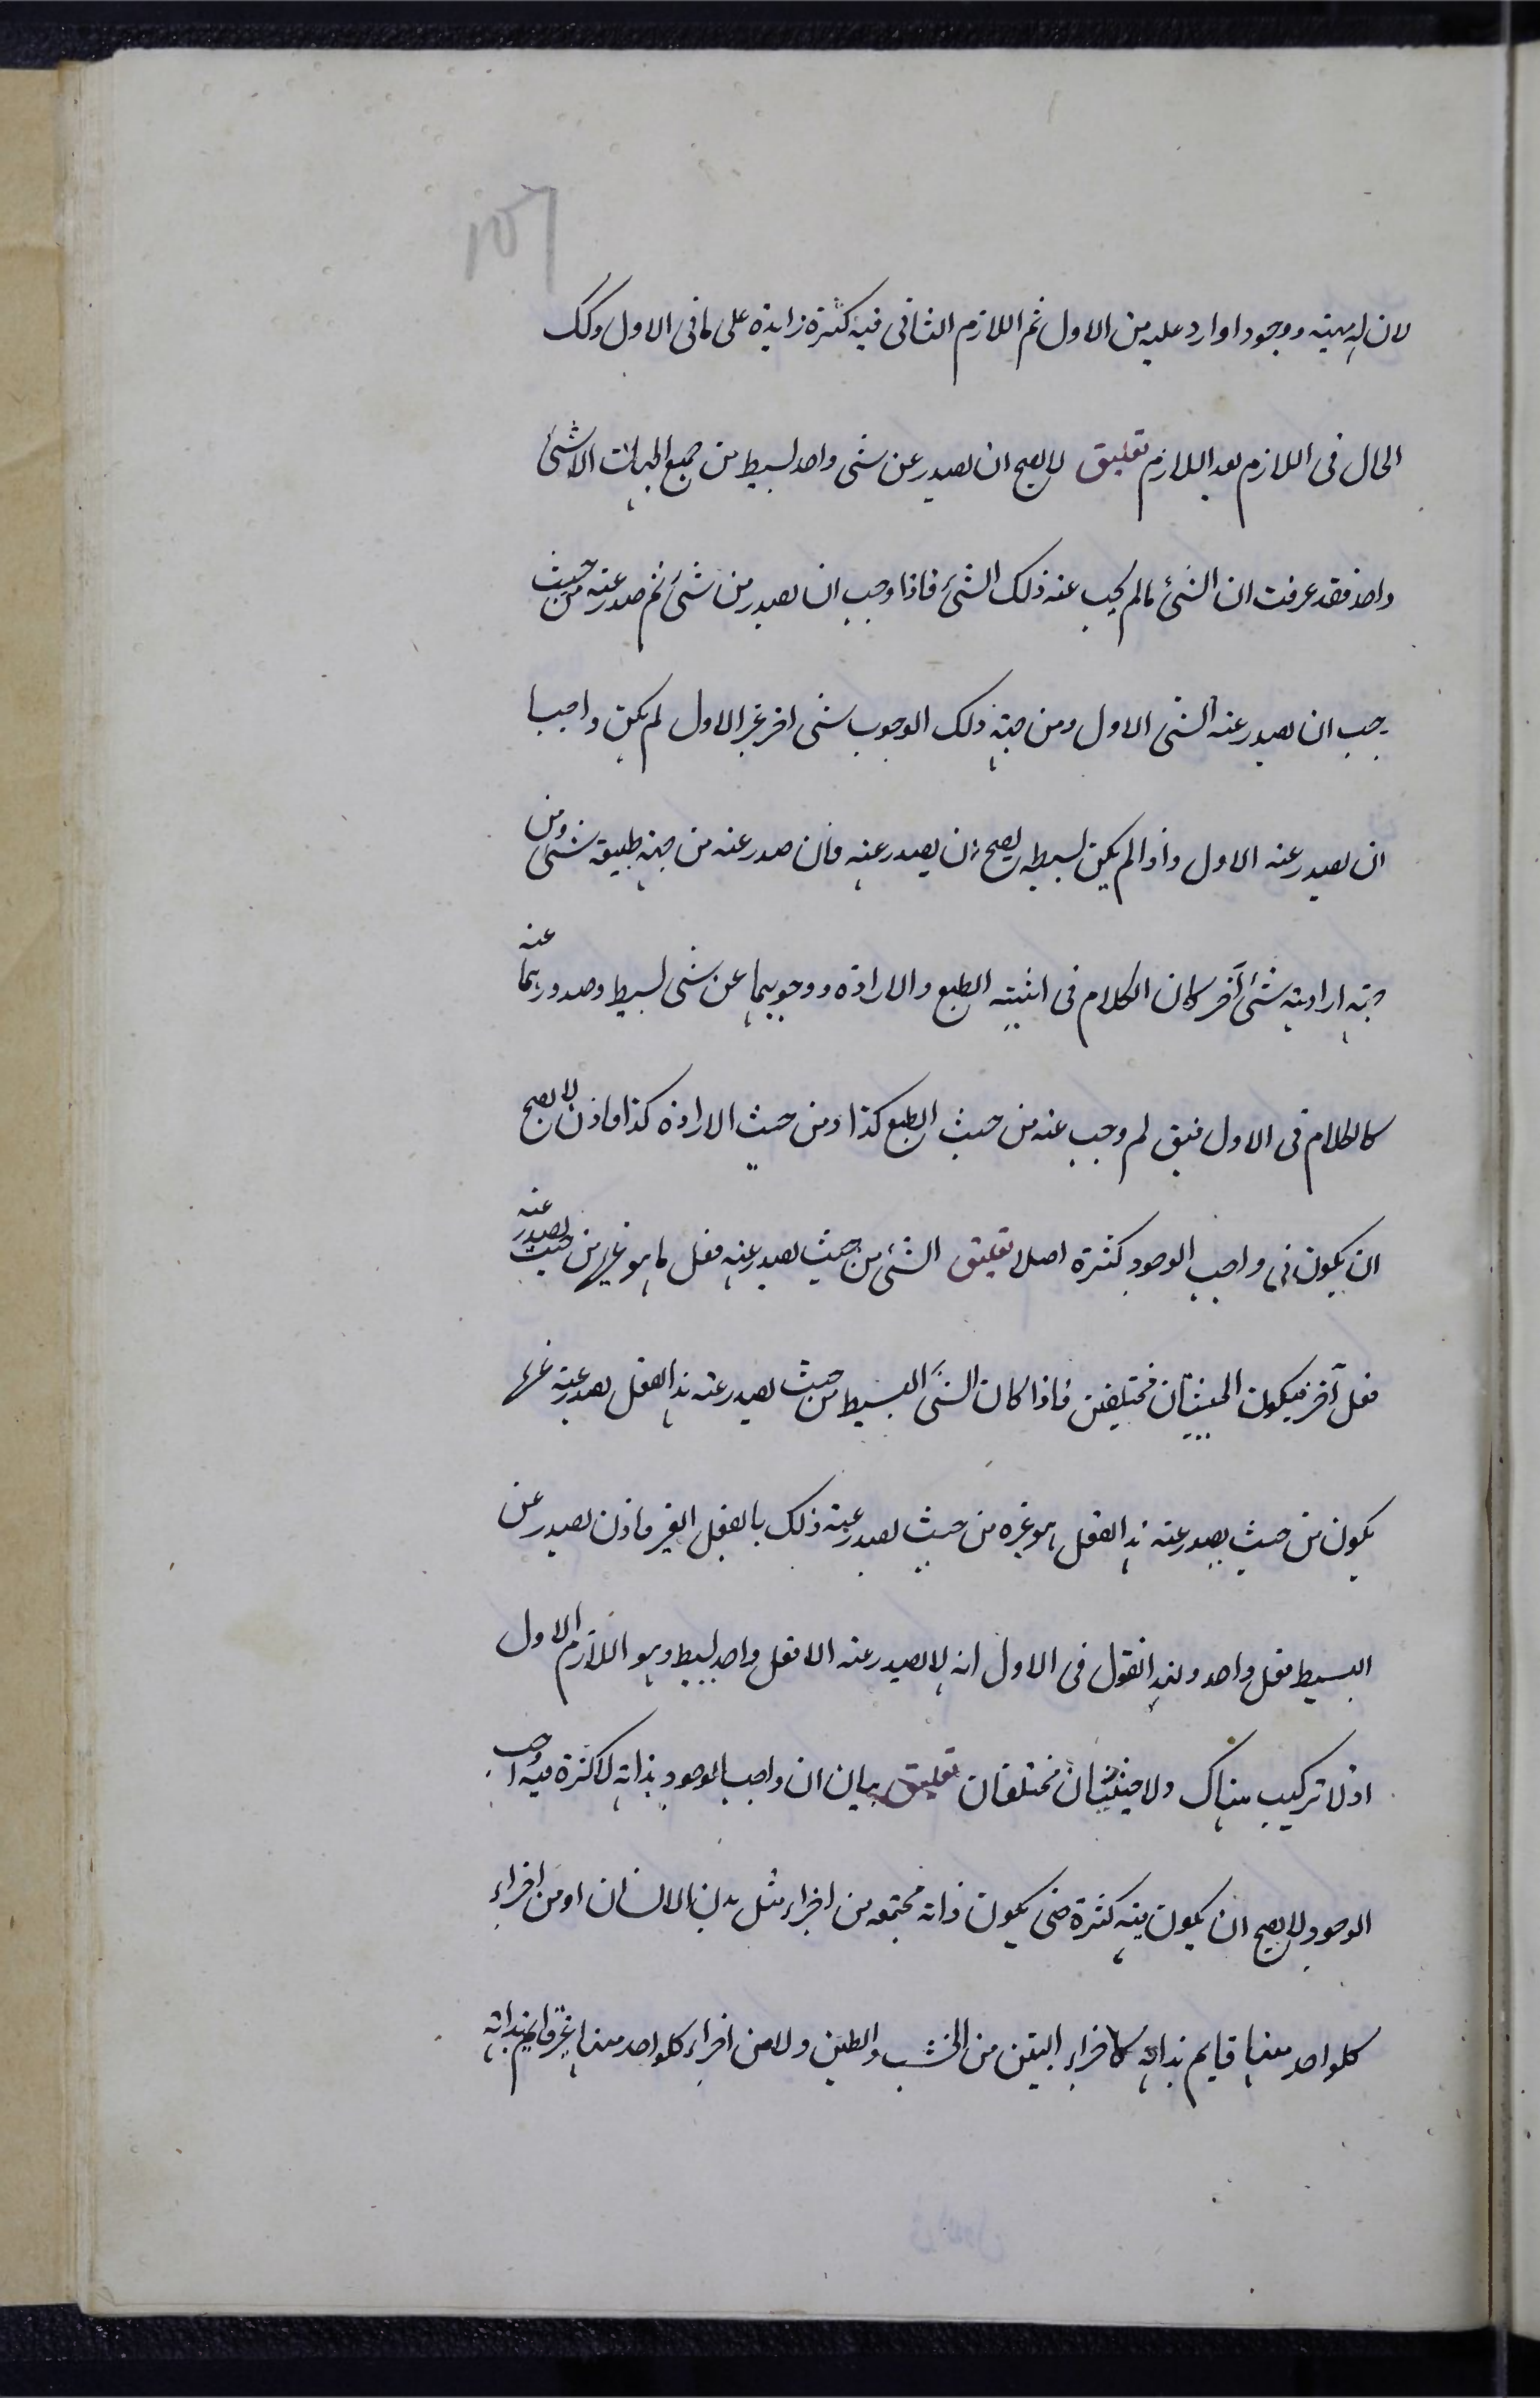 ١٥٦
لان له مهية ووجودا وارد عليه من الاول ثم اللازم الثانى فيه كثرة زايدة على ما فى الاول وكك
الحال فى اللازم بعد اللازم تعليق لا يصح ان يصدر عن شى واحد بسيط من جميع الجهات الا شئ
واحد فقد عرفت ان الشئ ما لم يجب عنه ذلك الشئ فاذا وجب ان يصدر من شئ ثم صدر عنه من حيث
يجب ان يصدر عنه الشئ الاول ومن جهة ذلك الوجوب شى اخر غير الاول لم يكن واجبا
ان يصدر عنه الاول واذا لم يكن بسيطه يصح ان يصدر عنه فان صدر عنه من جهة طبيعة شئ ومن
جهة ارادية شئ آخر كان الكلام فى اثنينية الطبع والارادة ووجوبهما عن شى بسيط وصدورهما عنه
كالكلام فى الاول فيق لم وجب عنه من حيث الطبع كذا ومن حيث الارادة كذا فاذن لا يصح
ان يكون فى واجب الوجود كثرة اصلا تعليق الشئ من حيث يصدر عنه فعل ما هو غيره من حيث يصدر عنه
فعل آخر فيكون الحيثيتان مختلفتين فاذا كان الشئ البسيط من حيث يصدر عنه هذا الفعل يصدر عنه غيره
يكون من حيث يصدر عنه هذا الفعل هو غيره من حيث يصدر عنه ذلك بالفعل الغير فاذن يصدر عن
البسيط فعل واحد ولهذا نقول فى الاول انه لا يصدر عنه الا فعل واحد بسيط وهو اللازم الاول
اذ لا تركيب هناك ولا حيثيتان مختلفتان تعليق بيان ان واجب الوجود بذاته لا كثرة فيه واجب
الوجود لا يصح ان يكون فيه كثرة حتى يكون ذاته مجتمعه من اجزاء مثل بدن الانسان او من اجزاء
كلواحد منها قايم بذاته كاجزاء البيت من الخشب والطين ولا من اجزاء كلواحد منها غير قايم بذاته